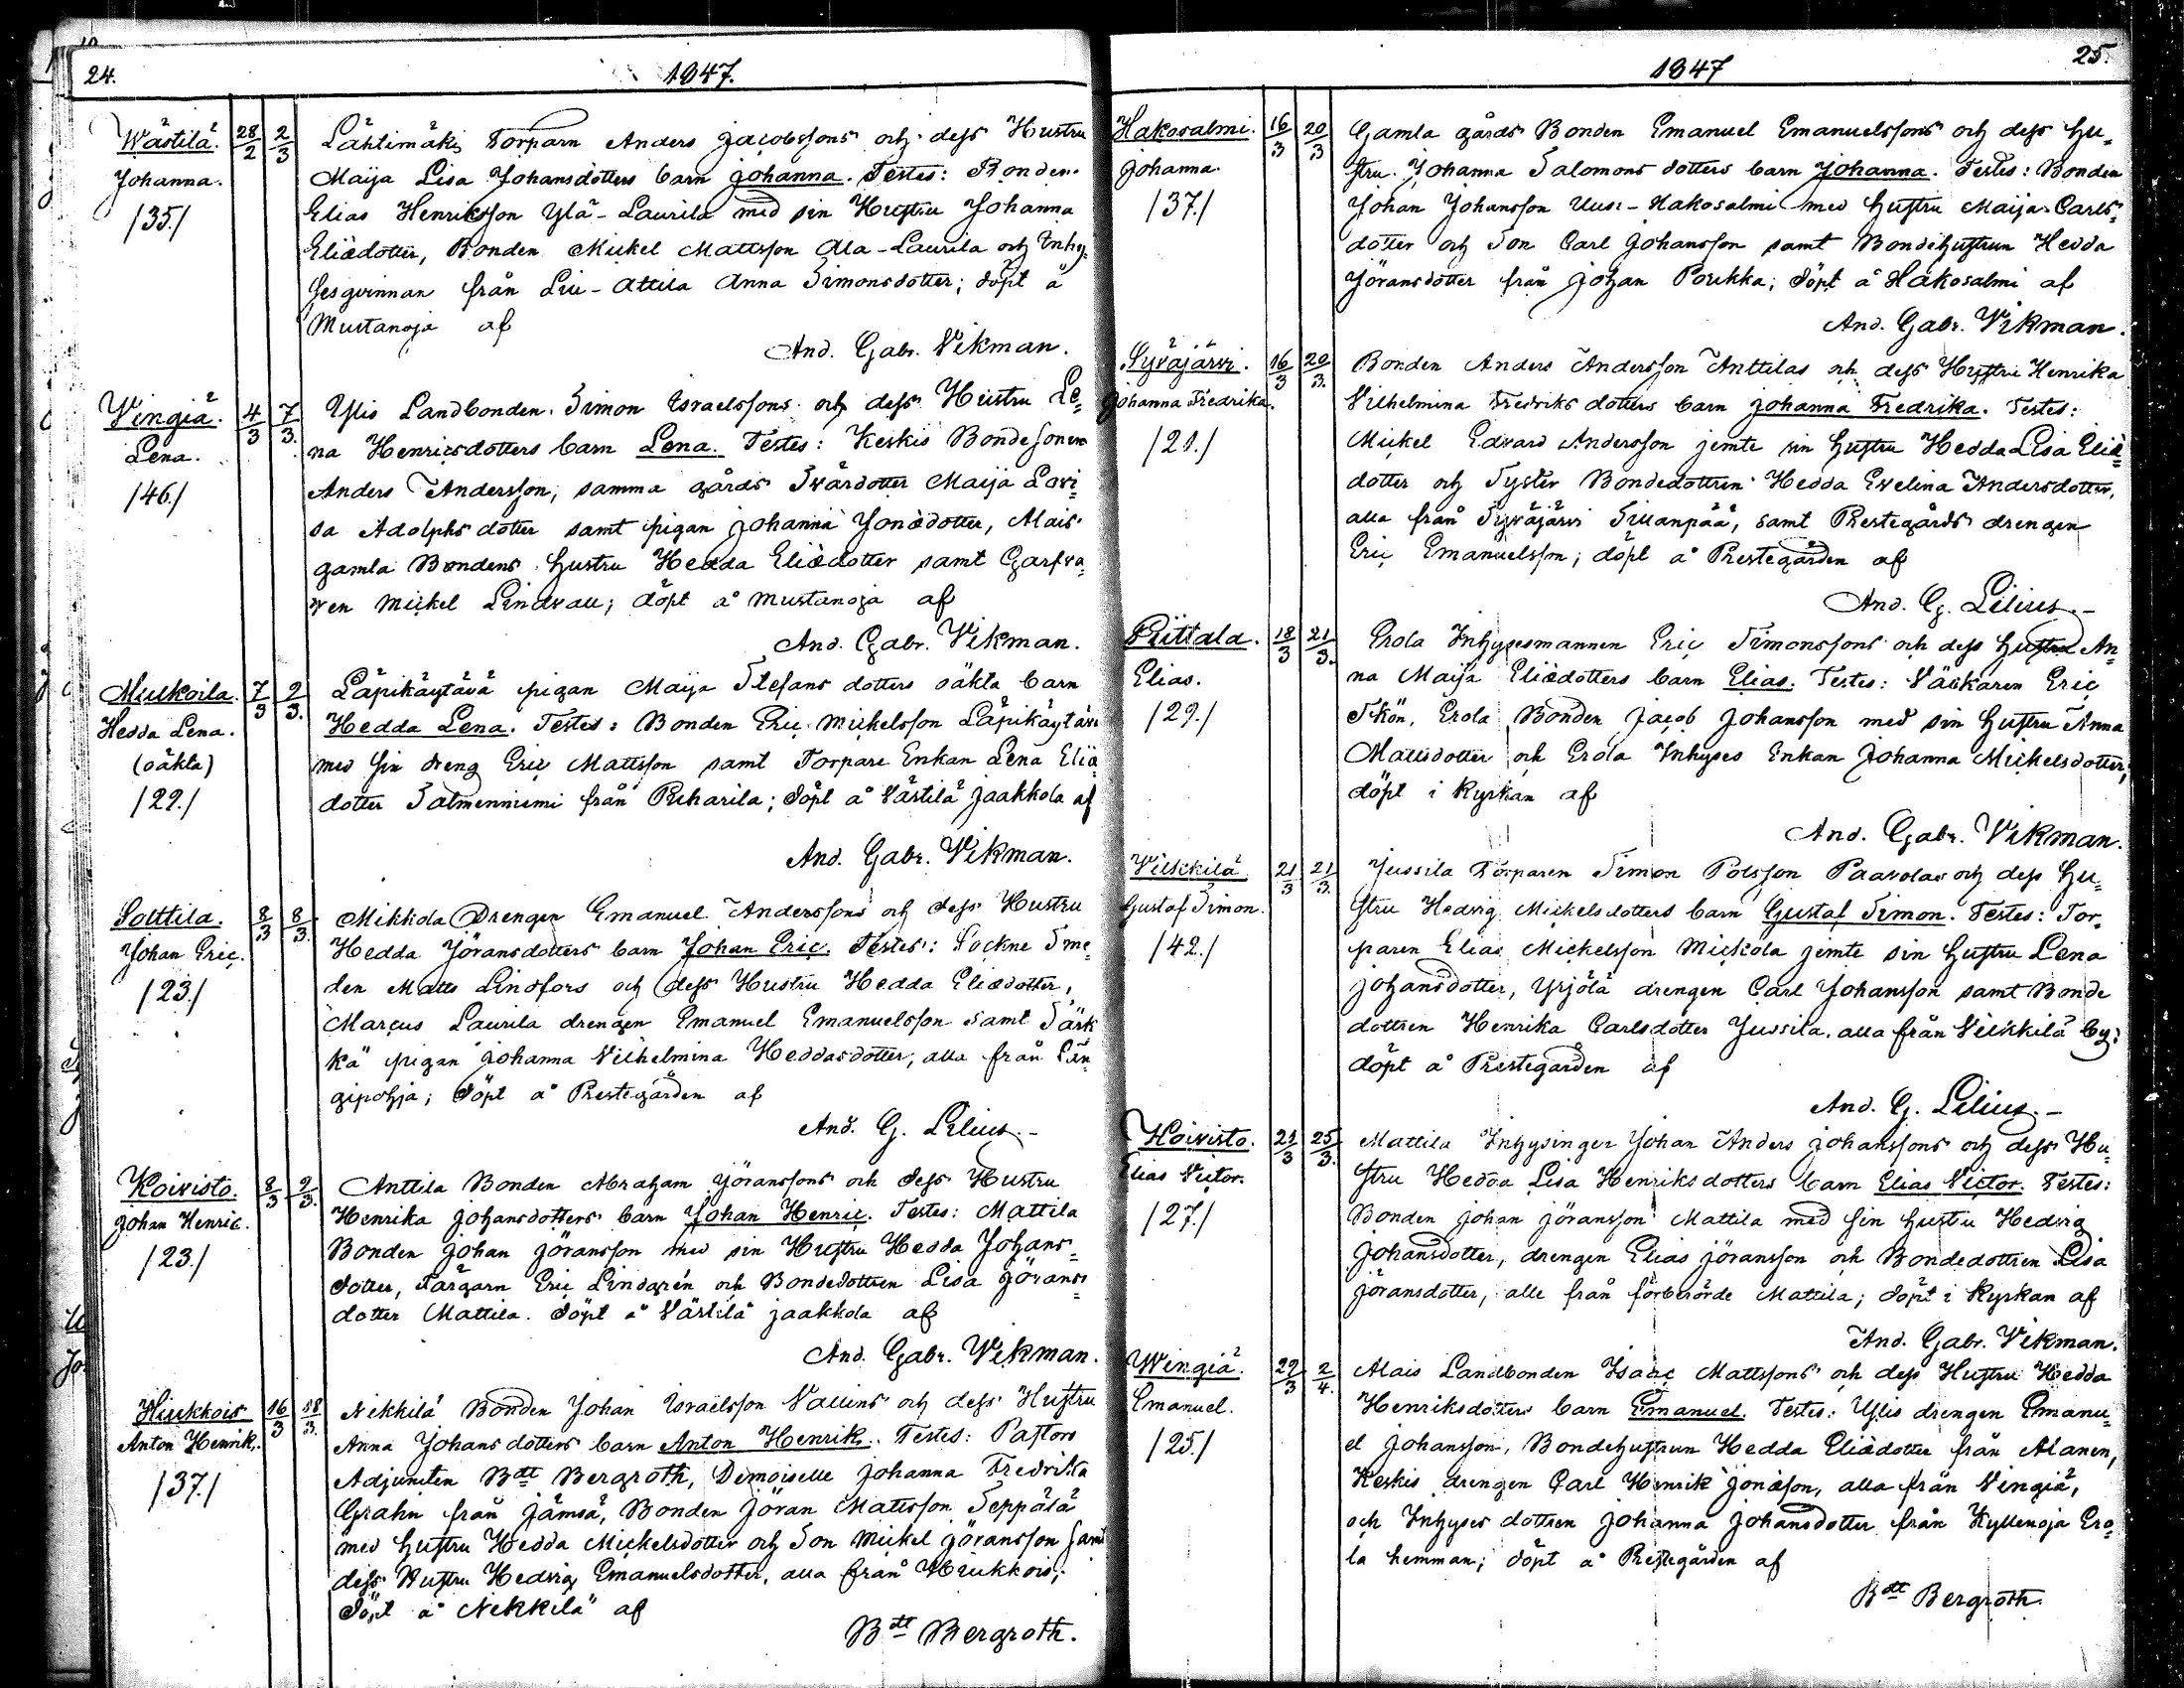 24.
1847.
Wästilä. 28/2 2/3 Lähtimäki Torparn Anders Jacobssons och dess Hustru
Johanna. Maija Lisa Johansdotters barn Johanna. Testes: Bonden
/35./ Elias Henriksson Ylä-Laurila med sin Hustru Johanna
Eliædotter, Bonden Mickel Mattsson Ala-Laurila och Inhy=
sesqvinnan från Liu-Attila Anna Simonsdotter; döpt å
Mustanoja af
And. Gabr. Vikman.
Vingiä. 4/3 7/3. Ylis Landbonden Simon Israelssons och dess Hustru Le=
Lena. na Henricsdotters barn Lena. Testes: Keskis Bondesonen
/46./ Anders Andersson, samma gårds Svärdotter Maija Lovi=
sa Adolphs dotter samt pigan Johanna Jonædotter, Alais
gamla Bondens hustru Hedda Eliædotter samt Garfva=
ren Mickel Lindvall; döpt å Mustanoja af
And. Gabr. Vikman.
Mulkoila. 7/3 9/3. Läpikäytävä pigan Maija Stefans dotters oäkta barn
Hedda Lena. Hedda Lena. Testes: Bonden Eric Mickelsson Läpikäytävä
(oäkta) med sin dreng Eric Mattsson samt Torpare Enkan Lena Eliæ
/29./ dotter Salmenniemi från Riharila; döpt å Västilä Jaakkola af
And. Gabr. Vikman.
Solttila. 8/3 8/3. Mikkola Drengen Emanuel Anderssons och dess Hustru
Johan Eric. Hedda Jöransdotters barn Johan Eric. Testes: Sockne Sme=
/23./ den Matts Lindfors och dess Hustru Hedda Eliædotter,
Marcus Laurila drengen Emanuel Emanuelsson samt Särk
kä pigan Johanna Vilhelmina Heddasdotter, alla från Län
gipohja; döpt å Prestegården af
And. G. Lilius.-
Koivisto. 8/3 9/3. Anttila Bonden Abraham Jöranssons och dess Hustru
Johan Henric. Henrika Johansdotters barn Johan Henric. Testes: Mattila
/23./ Bonden Johan Jöransson med sin Hustru Hedda Johans=
dotter, Färgarn Eric Lindgrén och Bondedottren Lisa Jörans=
dotter Mattila. döpt å Västilä Jaakkola af
And. Gabr. Vikman.
Hiukkois 16/3 18/3. Nikkilä Bonden Johan Israelsson Vallins och dess Hustru
Anton Henrik. Anna Johans dotters barn Anton Henrik. Testes: Pastors
/37./ Adjuncten Bdt Bergroth, Demoiselle Johanna Fredrika
Grahn från Jämsä, Bonden Jöran Mattsson Seppälä
med hustru Hedda Mickelsdotter och Son Mickel Jöransson samt
dess Hustru Hedvig Emanuelsdotter, alla från Hiukkois;
döpt å Nikkilä af
Bdt Bergroth.
1847
25.
Hakosalmi. 16/3 20/3 Gamla gårds Bonden Emanuel Emanuelssons och dess Hu=
Johanna. stru Johanna Salomons dotters barn Johanna. Testes: Bonden
/37./ Johan Johansson Uusi-Hakosalmi med hustru Maija Carls=
dotter och Son Carl Johansson samt Bondehustrun Hedda
Jöransdotter från Johan Poukka; döpt å Hakosalmi af
And. Gabr. Vikman.
Syväjärvi. 16/3 20/3. Bonden Anders Andersson Anttilas och dess Hustru Henrika
Johanna Fredrika. Vilhelmina Fredriks dotters barn Johanna Fredrika. Testes:
/21./ Mickel Edvard Andersson jemte sin hustru Hedda Lisa Eliæ=
dotter och Syster Bondedottren Hedda Evelina Andersdotter,
alla från Syväjärvi Sillanpää, samt Prestegårds drengen
Eric Emanuelsson; döpt å Prestegården af
And. G. Lilius.-
Riittala. 18/3 21/3. Erola Inhysesmannen Eric Simonssons och dess hustru An=
Elias. na Maija Eliædotters barn Elias. Testes: Väckaren Eric
/29./ Skön, Erola Bonden Jacob Johansson med sin hustru Anna
Mattsdotter och Erola Inhyses Enkan Johanna Mickelsdotter;
döpt i Kyrkan af
And. Gabr. Vikman.
Vilkkilä 21/3 21/3. Jussila Torparen Simon Polsson Paavolas och dess hu=
Gustaf Simon. stru Hedvig Mickelsdotters barn Gustaf Simon. Testes: Tor=
/42./ paren Elias Mickelsson Mickola jemte sin hustru Lena
Johansdotter, Yrjölä drengen Carl Johansson samt Bonde
dottren Henrika Carlsdotter Jussila, alla från Vilkkilä by;
döpt å Prestegården af
And. G. Lilius.-
Koivisto. 21/3 25/3. Mattila Inhysinger Johan Anders Johanssons och dess Hu=
Elias Victor. stru Hedda Lisa Henriksdotters barn Elias Victor. Testes:
/27./ Bonden Johan Jöransson Mattila med sin hustru Hedvig
Johansdotter, drengen Elias Jöransson och Bondedottren Lisa
Jöransdotter, alle från förberörde Mattila; döpt i Kyrkan af
And. Gabr. Vikman.
Wingiä. 29/3 2/4. Alais Landbonden Isaac Mattssons och dess Hustru Hedda
Emanuel. Henriksdotters barn Emanuel. Testes: Ylis drengen Emanu=
/25./ el Johansson, Bondehustrun Hedda Eliædotter från Alanen,
Keskis drengen Carl Henrik Jonæson, alla från Vingiä,
och Inhyses dottren Johanna Johansdotter från Kyllenoja Ero=
la hemman; döpt å Prestegården af
Bdt Bergroth.